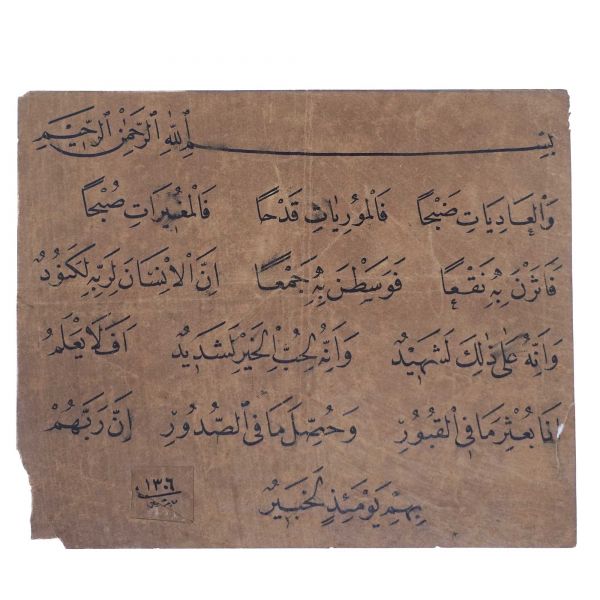 بِسْمِ اللّٰهِ الرَّحْمٰنِ الرَّحِيمِ
وَالْعَادِيَاتِ ضَبْحًا فَالْمُورِيَاتِ قَدْحًا فَالْمُغِيرَاتِ صُبْحًا
فَاَثَرْنَ بِهِ نَقْعًا فَوَسَطْنَ بِهِ جَمْعًا اِنَّ الْاِنْسَانَ لِرَبِّهِ لَكَنُودٌ
وَاِنَّهُ عَلٰى ذٰلِكَ لَشَهِيدٌ وَاِنَّهُ لِحُبِّ الْخَيْرِ لَشَدِيدٌ اَفَلَا يَعْلَمُ
اِذَا بُعْثِرَ مَا فِي الْقُبُورِ وَحُصِّلَ مَا فِي الصُّدُورِ اِنَّ رَبَّهُمْ
بِهِمْ يَوْمَئِذٍ لَخَبِيرٌ
١٣٠٦